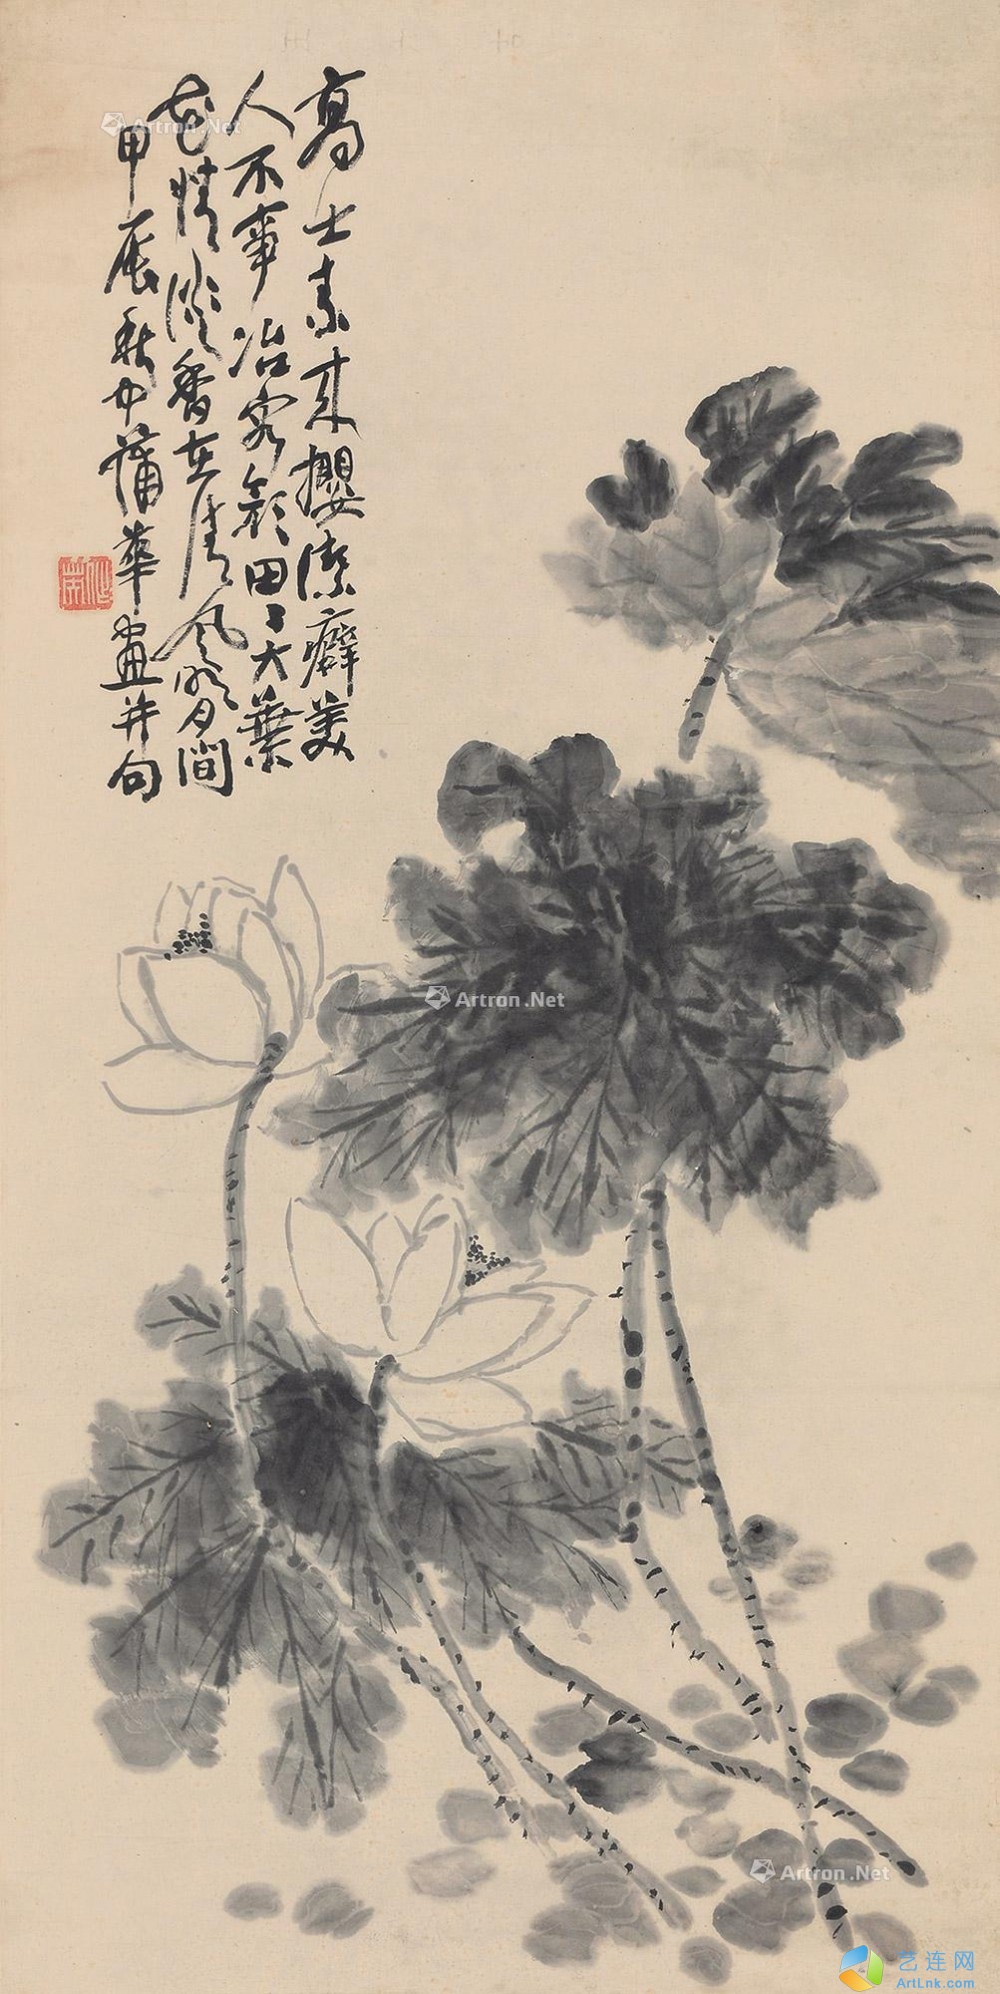 高士素来撄洁癖美
人不事冶容颜田〻大叶
花情澹香在清风明月间
甲辰秋中蒲華画并句
Artron.Net
Artron.Net
Artron.Net
艺连网
ArtLnk.com